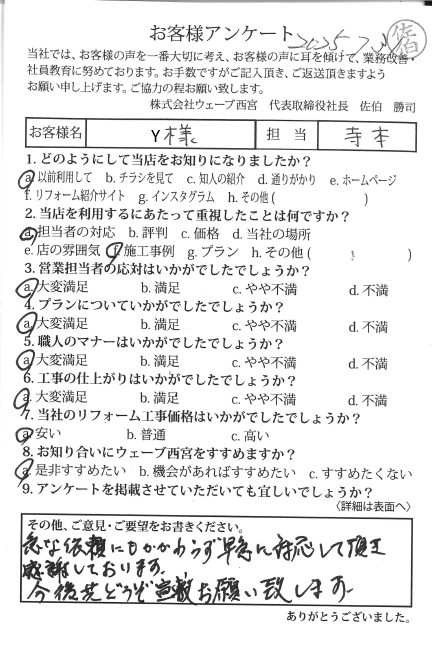 お客様アンケート 2025.7.
佐伯
当社では、お客様の声を一番大切に考え、お客様の声に耳を傾けて、業務改善・
社員教育に努めております。お手数ですがご記入頂き、ご返送頂きますよう
お願い申し上げます。ご協力の程お願い致します。
株式会社ウェーブ西宮 代表取締役社長 佐伯 勝司
お客様名 Y様 担当 寺本
1. どのようにして当店をお知りになりましたか?
a. 以前利用して b. チラシを見て c. 知人の紹介 d. 通りがかり e. ホームページ
f. リフォーム紹介サイト g. インスタグラム h. その他 ( )
2. 当店を利用するにあたって重視したことは何ですか?
a. 担当者の対応 b. 評判 c. 価格 d. 当社の場所
e. 店の雰囲気 f. 施工事例 g. プラン h. その他 ( )
3. 営業担当者の応対はいかがでしたでしょうか?
a. 大変満足 b. 満足 c. やや不満 d. 不満
4. プランについていかがでしたでしょうか?
a. 大変満足 b. 満足 c. やや不満 d. 不満
5. 職人のマナーはいかがでしたでしょうか?
a. 大変満足 b. 満足 c. やや不満 d. 不満
6. 工事の仕上がりはいかがでしたでしょうか?
a. 大変満足 b. 満足 c. やや不満 d. 不満
7. 当社のリフォーム工事価格はいかがでしたでしょうか?
a. 安い b. 普通 c. 高い
8. お知り合いにウェーブ西宮をすすめますか?
a. 是非すすめたい b. 機会があればすすめたい c. すすめたくない
9. アンケートを掲載させていただいても宜しいでしょうか?
〈詳細は表面へ〉
その他、ご意見・ご要望をお書きください。
急な依頼にもかかわらず早急に対応して頂き
感謝しております。
今後共どうぞ宜敷お願い致します。
ありがとうございました。